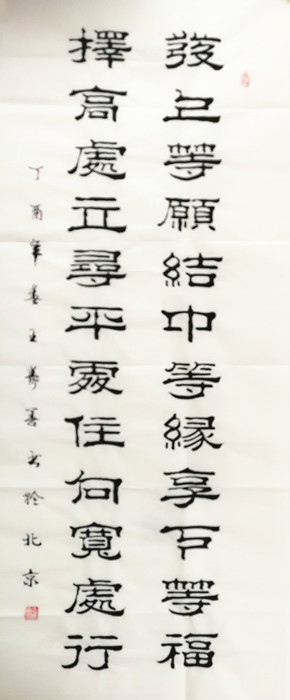 發上等願結中等緣享下等福
擇高處立尋平處住向寬處行
丁酉年春王善書於北京